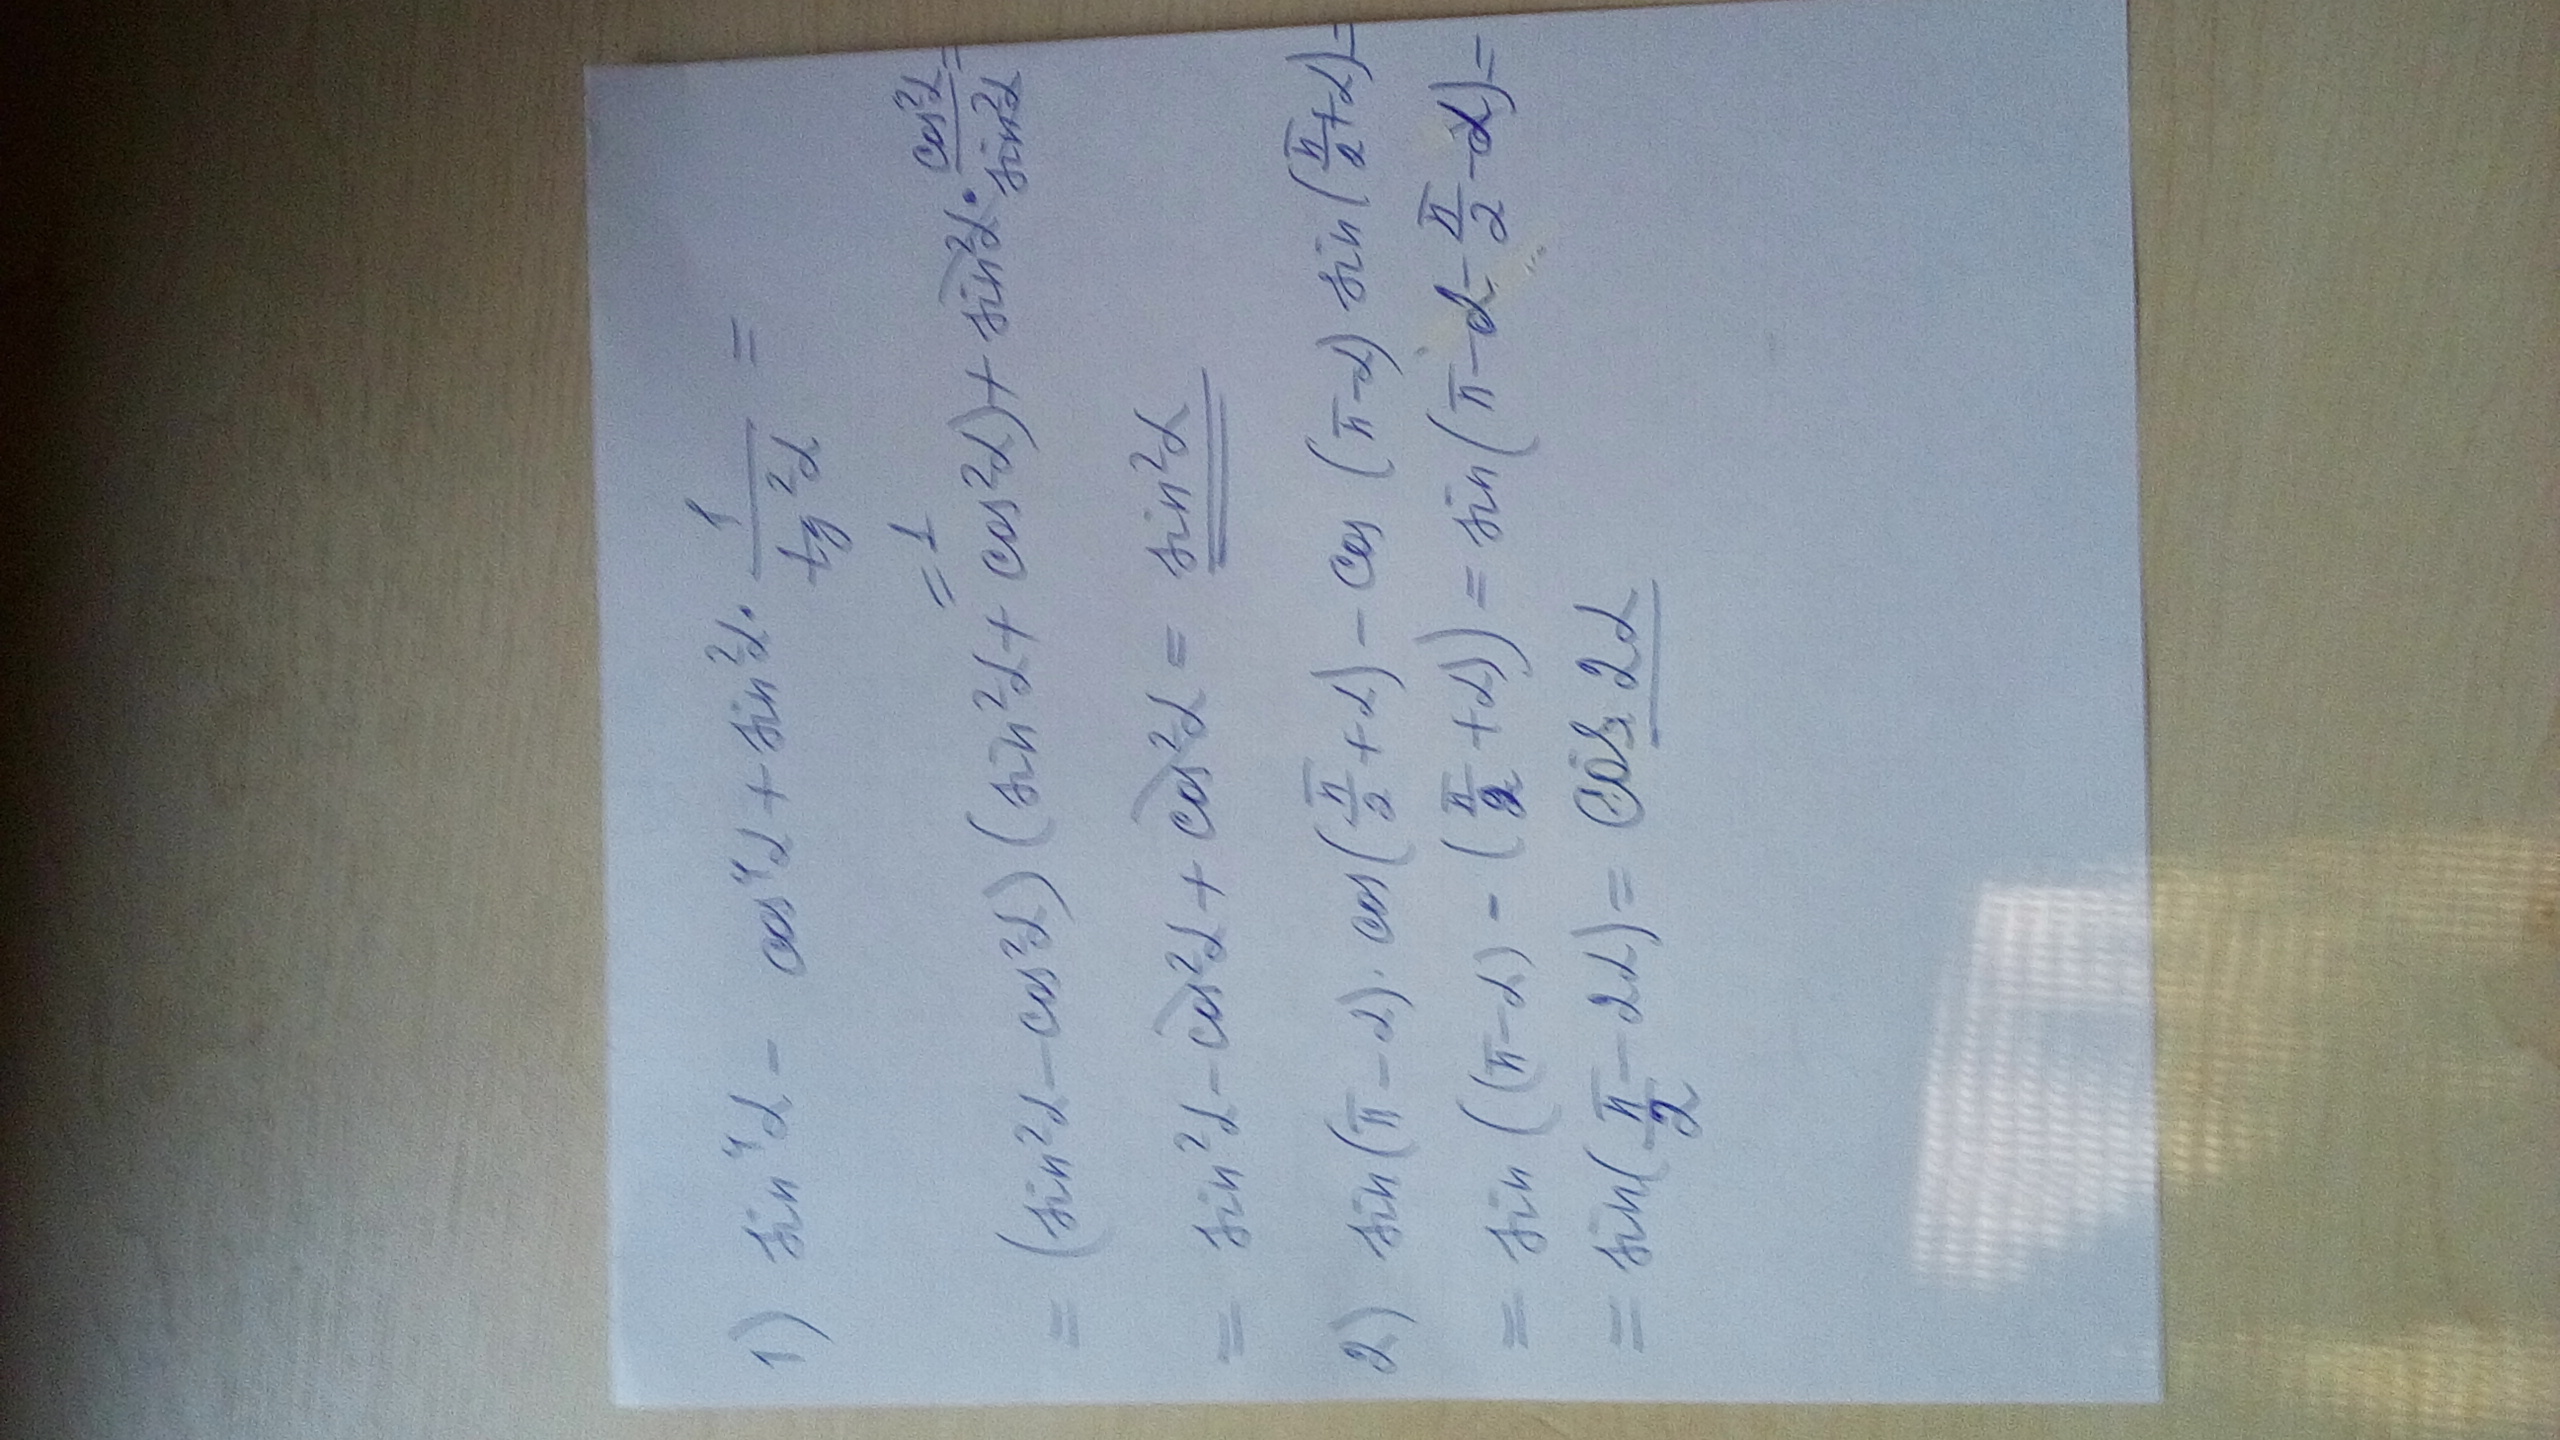 1) sin⁴α - cos⁴α + sin²α · 1/tg²α =
= (sin²α - cos²α)(sin²α + cos²α) + sin²α · cos²α/sin²α =
= 1
= sin²α - cos²α + cos²α = sin²α
2) sin(π - α) · cos(π/2 + α) - cos(π - α) sin(π/2 + α) =
= sin((π - α) - (π/2 + α)) = sin(π - α - π/2 - α) =
= sin(π/2 - 2α) = cos 2α